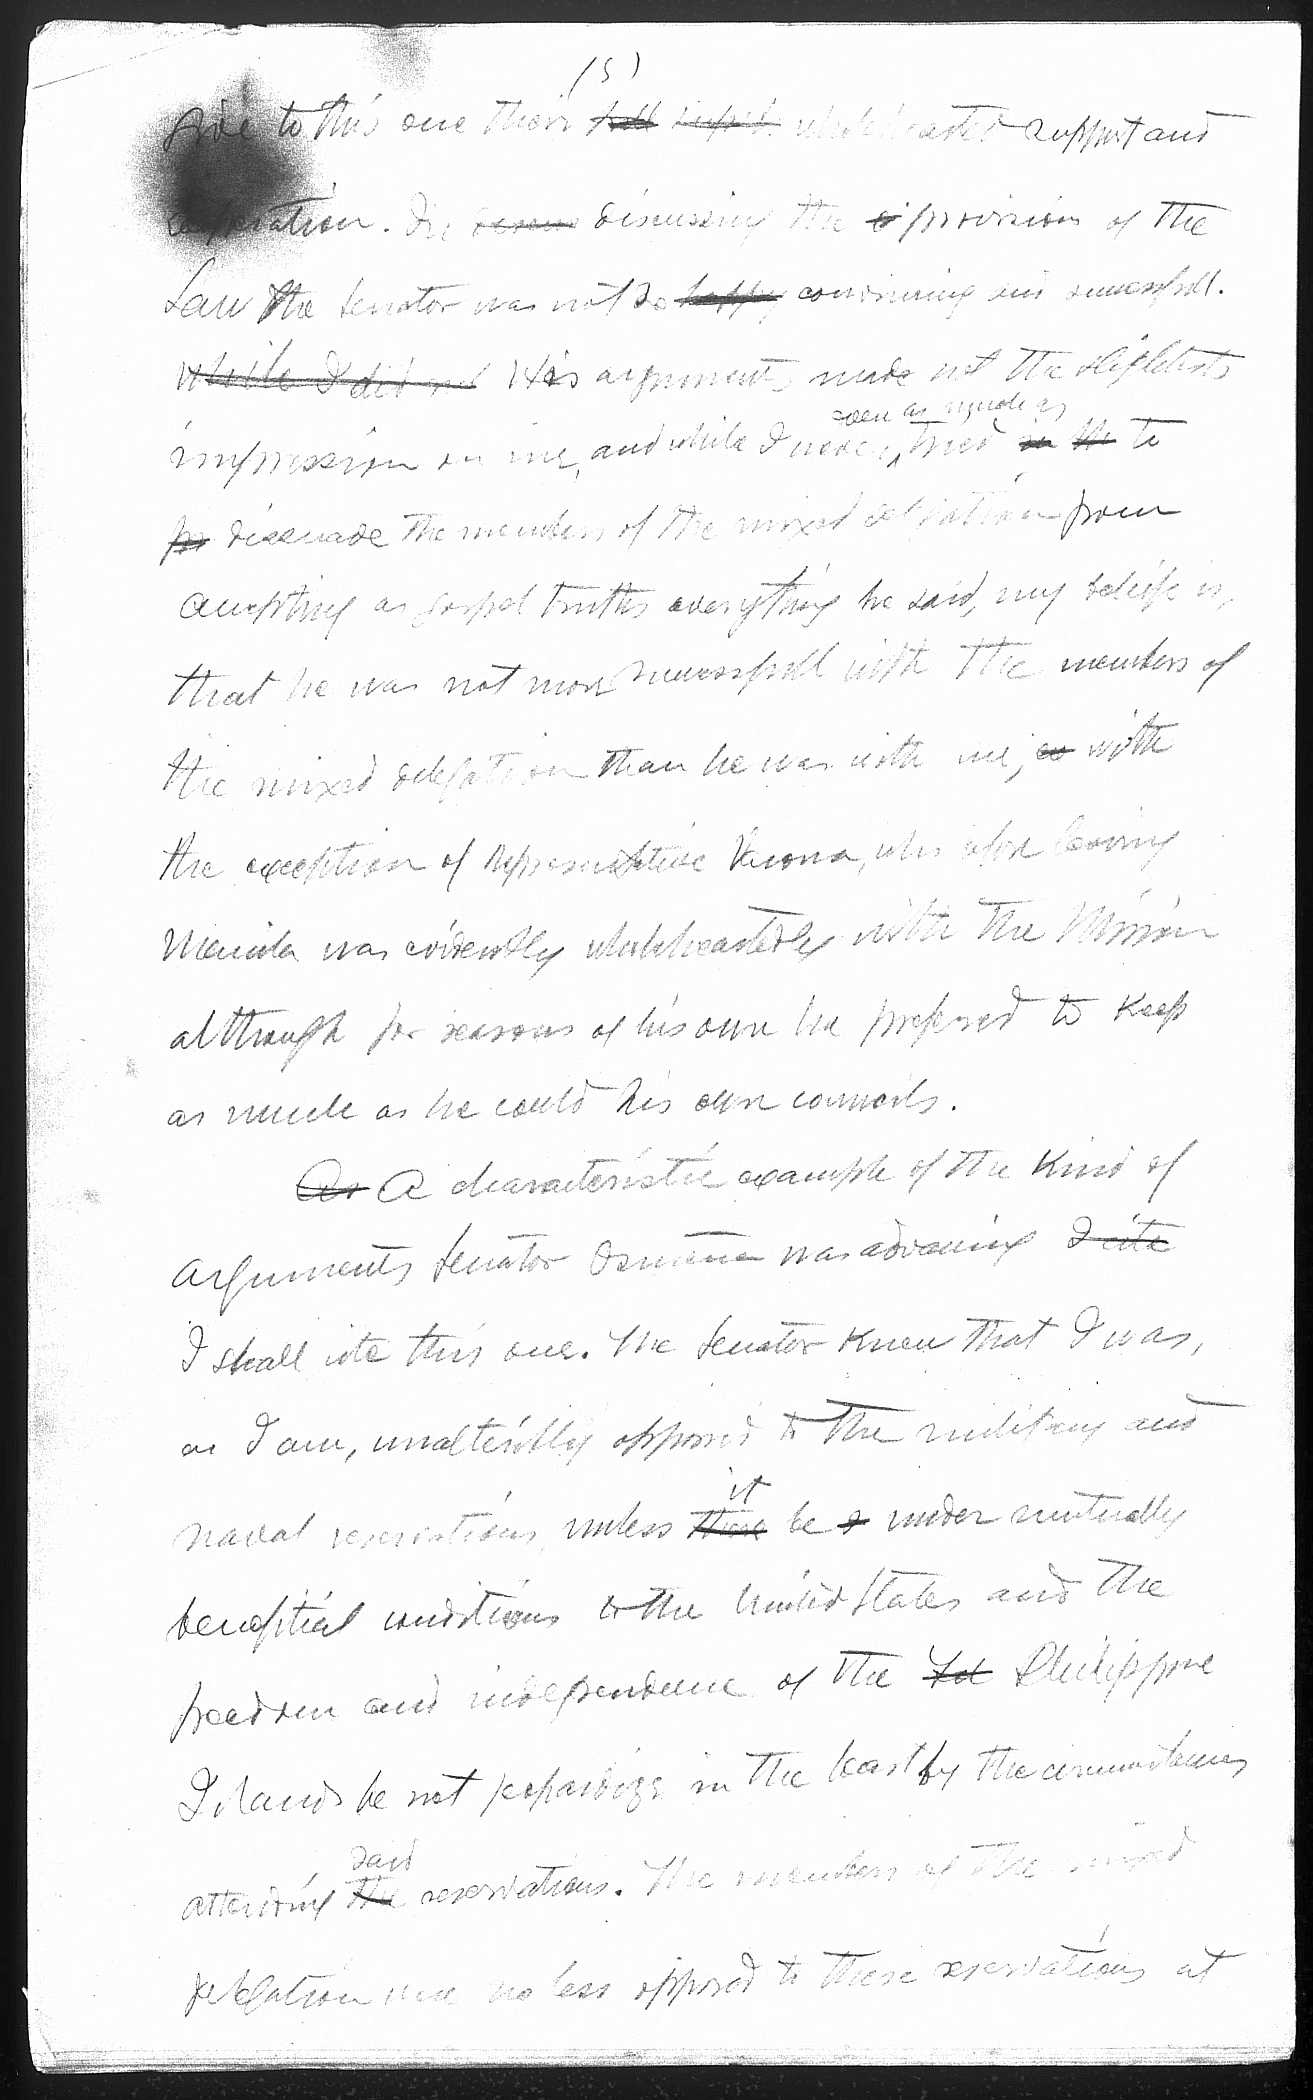 (5)
give to this one their full support wholehearted support and
cooperation. In discussing the provisions of the
Law the Senator was not so happy convincing and successfull.
While I did not His arguments made not the slightests
even as much as
impression on me, and while I never tried in the to
for dissuade the members of the mixed delegation from
accepting as gospel truths everything he said, my belief is,
that he was not more successfull with the members of
the mixed delegation than he was with me, with
the exception of Representative Varona, who before leaving
Manila was evidently wholeheartedly with the Mission
although for reasons of his own he prefered to keep
as much as he could his own councils.
As A characteristic example of the kind of
arguments Senator Osmeña was advancing I cite
I shall cite this one. The Senator knew that I was,
as I am, unalterably opposed to the military and
it
naval reservations, unless there be under mutually
beneficial conditions to the United States and the
freedom and independence of the Philippine
Islands be not jeopardize in the least by the circumstances
said
attending the reservations. The members of the mixed
delegation were no less opposed to these reservations at